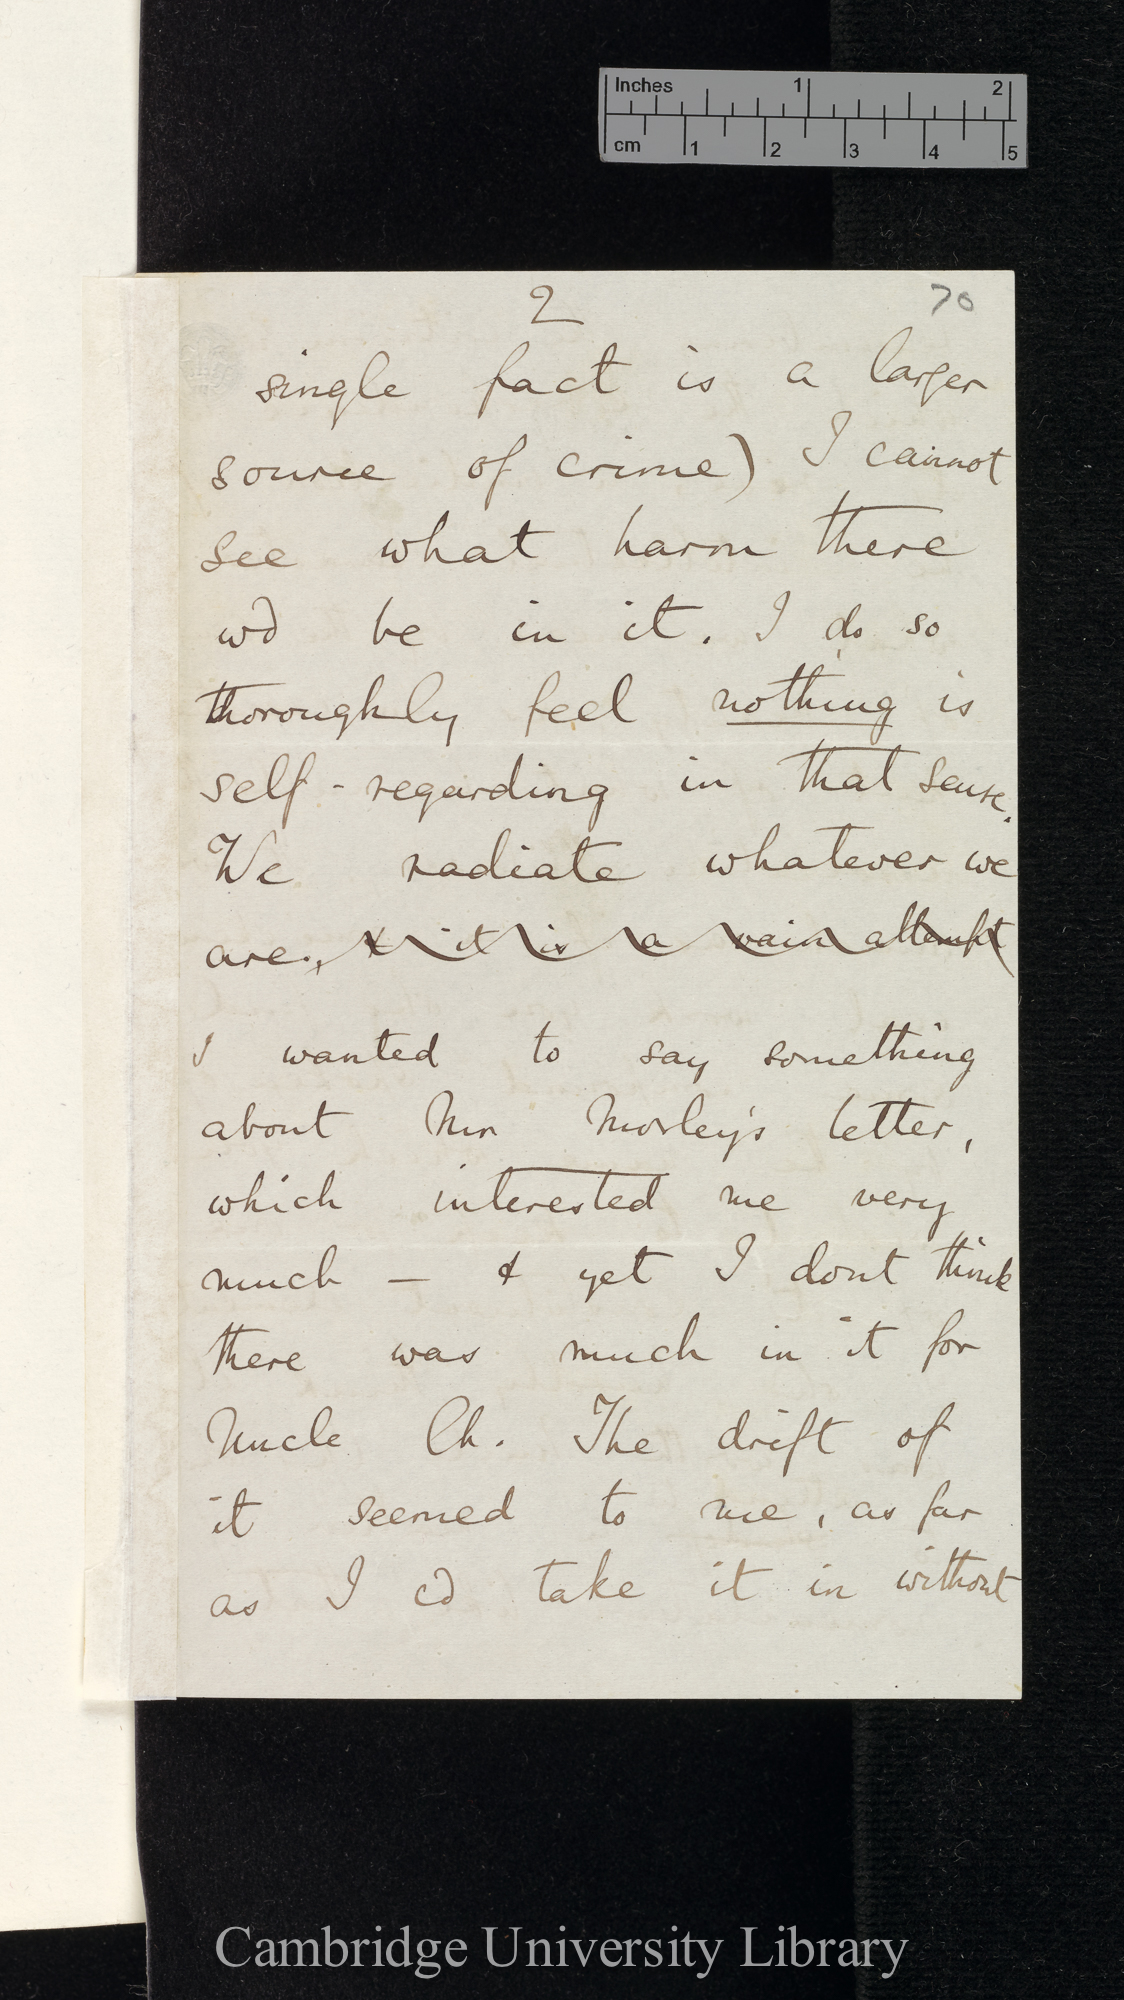 Inches 1 2
cm 1 2 3 4 5
2 70
single fact is a larger
source of crime) I cannot
see what harm there
wd be in it. I do so
thoroughly feel nothing is
self-regarding in that sense.
We radiate whatever we
are., & it is a vain attempt
I wanted to say something
about Mr Morley's letter,
which interested me very
much — & yet I dont think
there was much in it for
Uncle Ch. The drift of
it seemed to me, as far
as I cd take it in without
Cambridge University Library